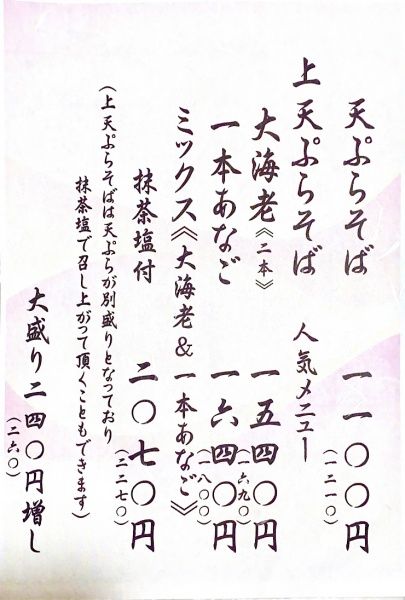 天ぷらそば 一一〇〇円
(一二一〇)
上天ぷらそば 人気メニュー
大海老《二本》 一五四〇円
(一六九〇)
一本あなご 一六四〇円
(一八〇〇)
ミックス《大海老&一本あなご》
抹茶塩付 二〇七〇円
(二二七〇)
(上天ぷらそばは天ぷらが別盛りとなっており
抹茶塩で召し上がって頂くこともできます)
大盛り二四〇円増し
(二六〇)